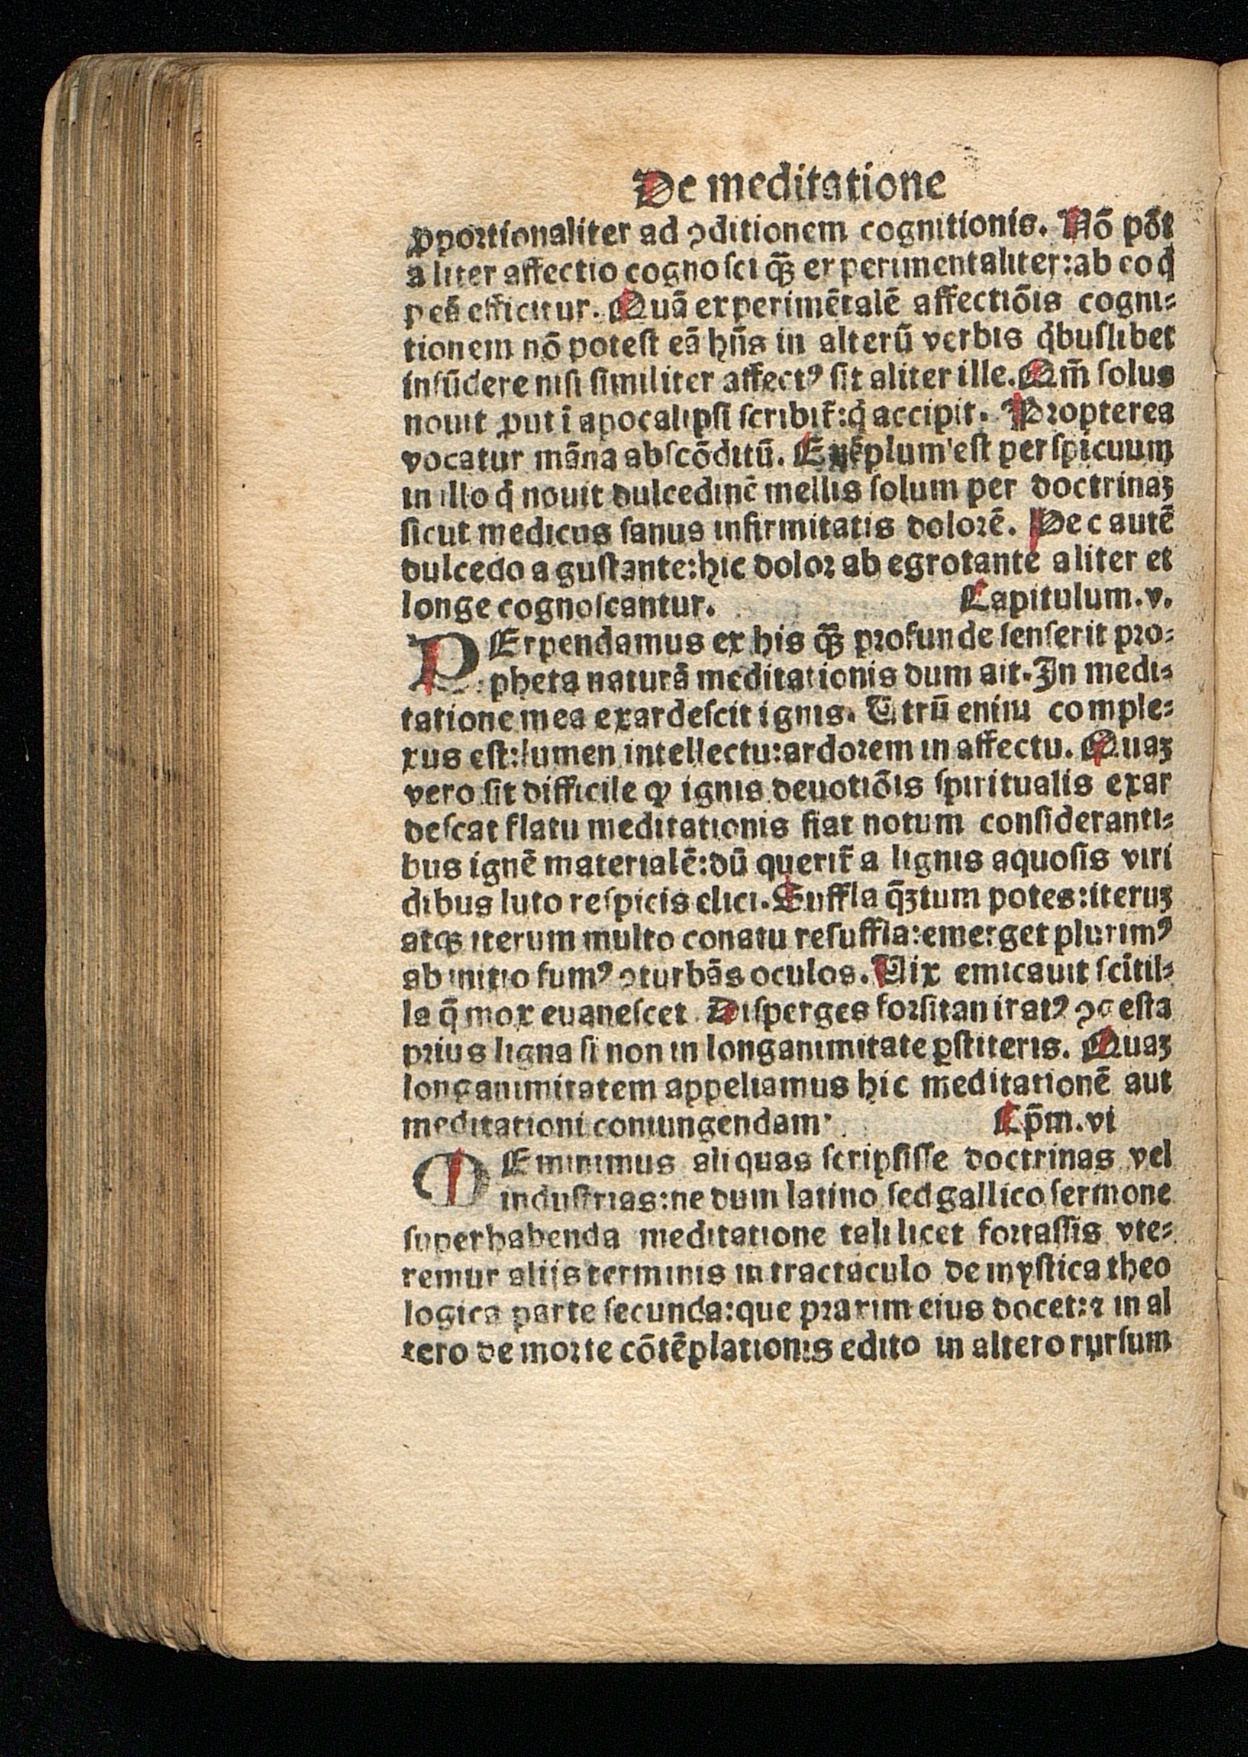 De meditatione
ꝓportionaliter ad ꝯditionem cognitionis. Nõ põt
aliter affectio cognosci q̃ꝫ experimentaliter:ab eo q̄
pes efficitur. Quã experimẽtalẽ affectiõis cogni⸗
tionem nõ potest eã hñs in alterũ verbis q̄buslibet
infũdere nisi similiter affectꝰ sit aliter ille. Qm̃ solus
nouit ꝓut ĩ apocalipsi scribit̃:q̄ accipit. Propterea
vocatur mãna abscõditũ. Exẽplum est perspicuum
in illo q̄ nouit dulcedinẽ mellis solum per doctrinaꝫ
sicut medicus sanus infirmitatis dolorẽ. Hec autẽ
dulcedo a gustante:hic dolor ab egrotante aliter et
longe cognoscantur. Capitulum.v.
PErpendamus ex his q̃ꝫ profunde senserit pro⸗
pheta naturã meditationis dum ait. In medi⸗
tatione mea exardescit ignis. Utrũ enim comple⸗
xus est:lumen intellectu:ardorem in affectu. Quaꝫ
vero sit difficile ꝙ ignis deuotiõis spiritualis exar
descat flatu meditationis fiat notum consideranti⸗
bus ignẽ materialẽ:dũ querit̃ a lignis aquosis viri
dibus luto respicis elici. Suffla q̃ꝫtum potes:iteruꝫ
atqꝫ iterum multo conatu resuffla:emerget plurimꝰ
ab initio fumꝰ ꝯturbãs oculos. Uix emicauit scĩtil⸗
la q̃ mox euanescet Disperges forsitan iratꝰ ꝯgesta
prius ligna si non in longanimitate ꝑstiteris. Quaꝫ
longanimitatem appellamus hic meditationẽ aut
meditationi coniungendam. Cp̃m.vi
MEminimus aliquas scripsisse doctrinas vel
industrias:ne dum latino sed gallico sermone
super habenda meditatione tali licet fortassis vte⸗
remur alijs terminis in tractaculo de mystica theo
logica parte secunda:que praxim eius docet:⁊ in al
tero de morte cõtẽplationis edito in altero rursum